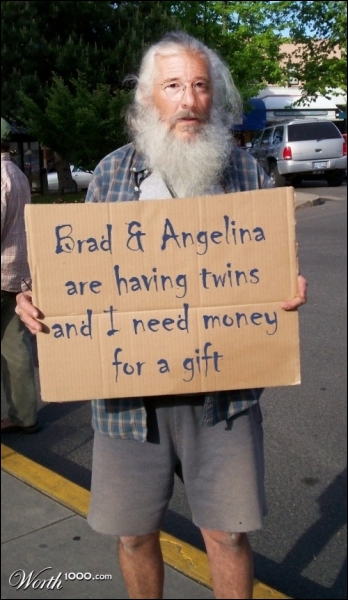 Brad & Angelina
are having twins
and I need money
for a gift
Worth1000.com